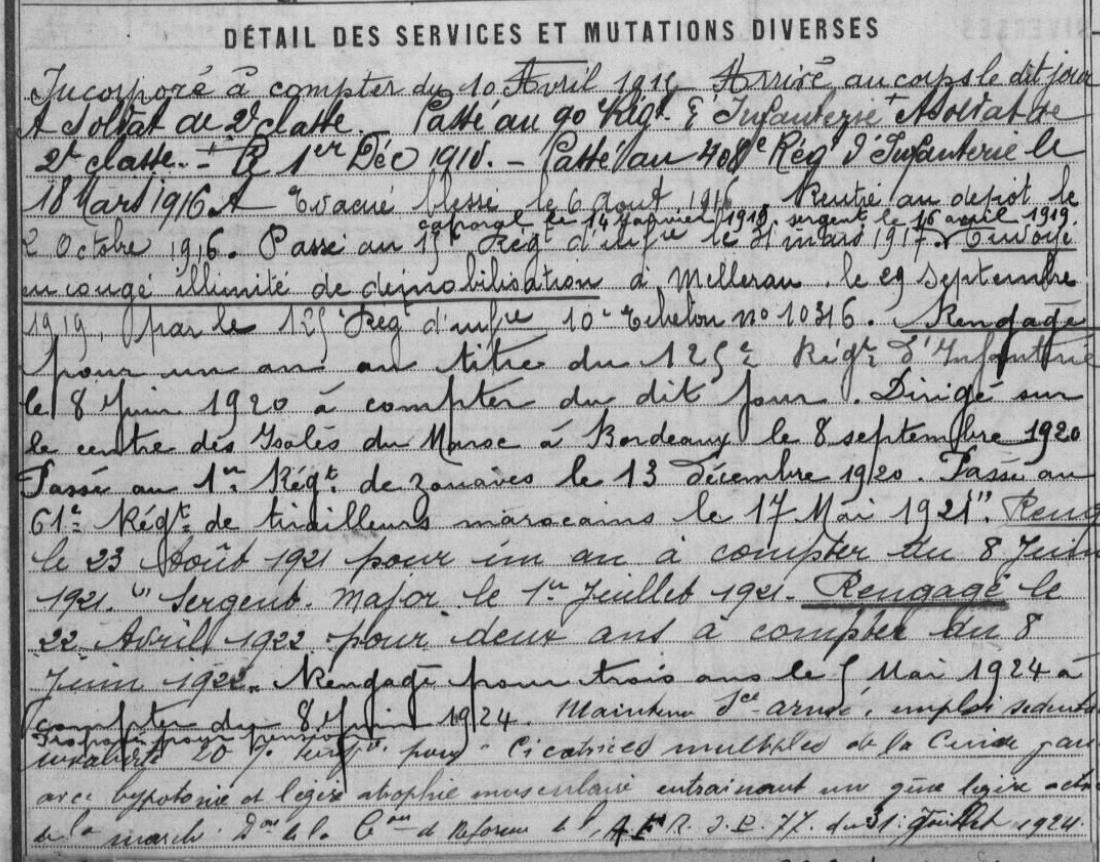 DÉTAIL DES SERVICES ET MUTATIONS DIVERSES
Incorporé à compter du 10 Avril 1915 Arrivé au corps le dit jour
et soldat de 2e classe. Passé au 90 Régt. d'Infanterie + Soldat de
2e classe. 1er Déc 1915. – Passé au 408e Régt d'Infanterie le
18 Mars 1916. Evacué blessé le 6 Aout 1916. Rentré au dépôt le
caporal le 14 Janvier 1919. sergent le 16 avril 1919.
2 Octobre 1916. Passé au Régt d'infie le 31 mars 1917. Envoyé
en congé illimité de démobilisation à Melleran. le 29 Septembre
1919, par le 125e Régt d'infie 10e Echelon no 10316. Rengagé
pour un an au titre du 125e Régt. d'Infanterie
le 8 Juin 1920 à compter du dit jour. Dirigé sur
le centre des Isolés du Maroc à Bordeaux le 8 septembre 1920
Passé au 1er Régt. de zouaves le 13 décembre 1920. Passé au
61e Régt. de tirailleurs marocains le 17 Mai 1921". Reng
le 23 Août 1921 pour un an à compter du 8 Juin
1921. " Sergent. Major. le 1er Juillet 1921. Rengagé le
22 Avril 1922 pour deux ans à compter du 8
Juin 1922. Rengagé pour trois ans le 5 Mai 1924 à
compter du 8 Juin 1924. Maintenu Sce armé, emploi sédent
Proposé pour pension
invalidité 20 % pour " Cicatrices multiples de la Cuisse gau
avec hypotonie et légère atrophie musculaire entrainant une gêne légère
de la marche. Don de la Con de Réforme de 31 Juillet 1924.